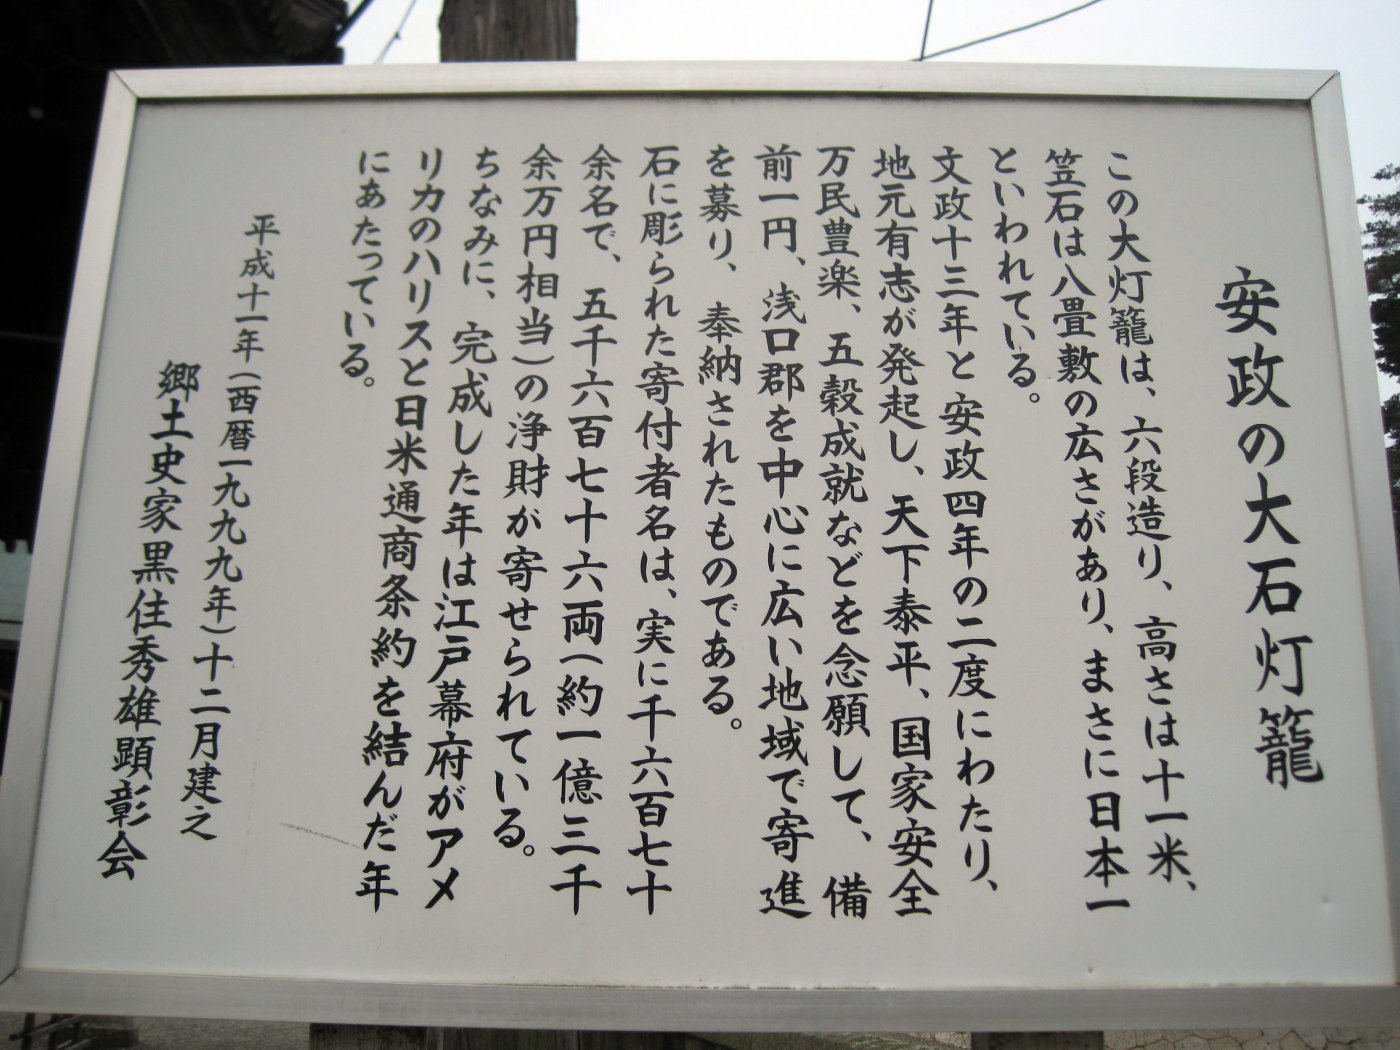 安政の大石灯籠
この大灯籠は、六段造り、高さは十一米、
笠石は八畳敷の広さがあり、まさに日本一
といわれている。
文政十三年と安政四年の二度にわたり、
地元有志が発起し、天下泰平、国家安全
万民豊楽、五穀成就などを念願して、備
前一円、浅口郡を中心に広い地域で寄進
を募り、奉納されたものである。
石に彫られた寄付者名は、実に千六百七十
余名で、五千六百七十六両(約一億三千
余万円相当)の浄財が寄せられている。
ちなみに、完成した年は江戸幕府がアメ
リカのハリスと日米通商条約を結んだ年
にあたっている。
平成十一年(西暦一九九九年)十二月建之
郷土史家黒住秀雄顕彰会